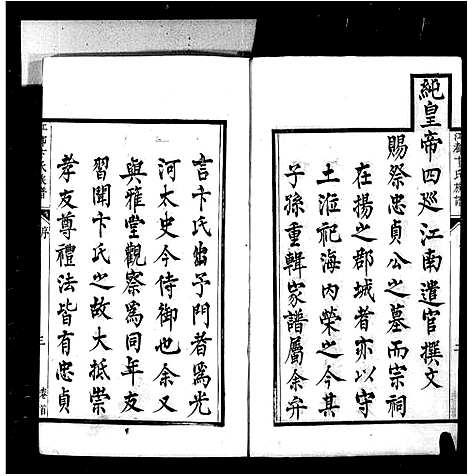 純皇帝四巡江南遣官撰文
賜祭忠貞公之墓而宗祠
在揚之郡城者亦以守
土涖祀海內榮之今其
子孫重輯家譜屬余弁
言卞氏出予門者為光
河太史今侍御也余又
與雅堂觀察為同年友
習聞卞氏之故大抵崇
孝友尊禮法皆有忠貞
序
三
卷首